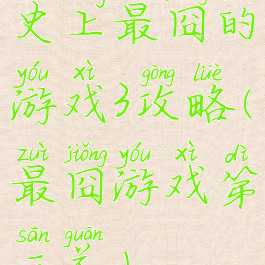 史上最囧的
yóu xì gōng lüè
游戏3攻略(
zuì jiǒng yóu xì dì
最囧游戏第
sān guān
三关)